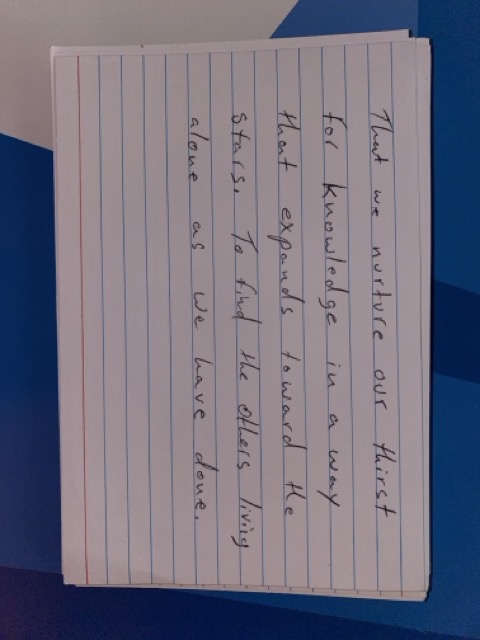 That we nurture our thirst
for knowledge in a way
that expands toward the
stars. To find the others living
alone as we have done.